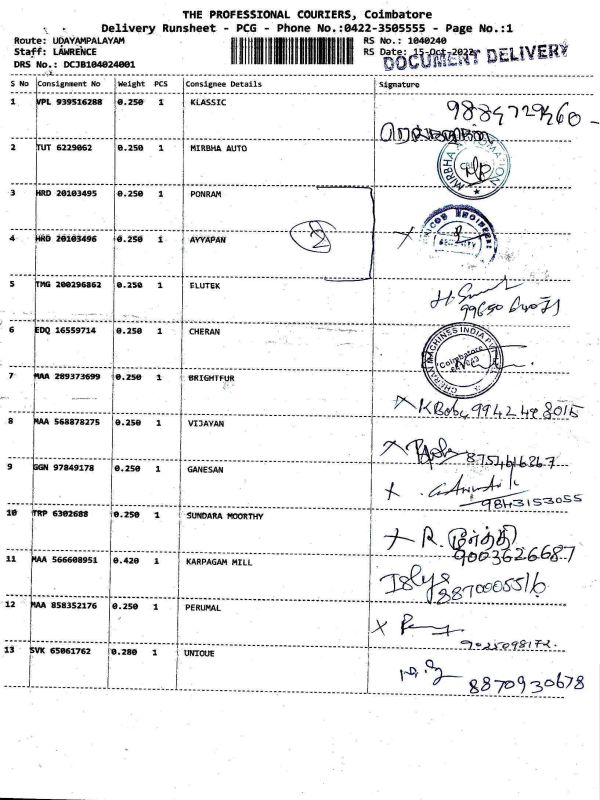 THE PROFESSIONAL COURIERS, Coimbatore
Delivery Runsheet - PCG - Phone No.:0422-3505555 - Page No.:1
Route: UDAYAMPALAYAM RS No.: 1040240
Staff: LAWRENCE RS Date: 15-Oct-2022
DRS No.: DCJB104024001 DOCUMENT DELIVERY
S No Consignment No Weight PCS Consignee Details Signature
1 VPL 939516288 0.250 1 KLASSIC
2 TUT 6229062 0.250 1 MIRBHA AUTO
MIRBHA AUTOMATION
3 HRD 20103495 0.250 1 PONRAM
4 HRD 20103496 0.250 1 AYYAPAN
5 TMG 200296862 0.250 1 ELUTEK
6 EDQ 16559714 0.250 1 CHERAN
CHERAN MACHINES INDIA PVT
Coimbatore
7 MAA 289373699 0.250 1 BRIGHTFUR
8 MAA 568878275 0.250 1 VIJAYAN
8754616367
9 GGN 97849178 0.250 1 GANESAN
9843153055
10 TRP 6302688 0.250 1 SUNDARA MOORTHY
R. மூர்த்தி
9003626687
11 MAA 566608951 0.420 1 KARPAGAM MILL
8870005516
12 MAA 858352176 0.250 1 PERUMAL
9025098172.
13 SVK 65061762 0.280 1 UNIQUE
8870930678